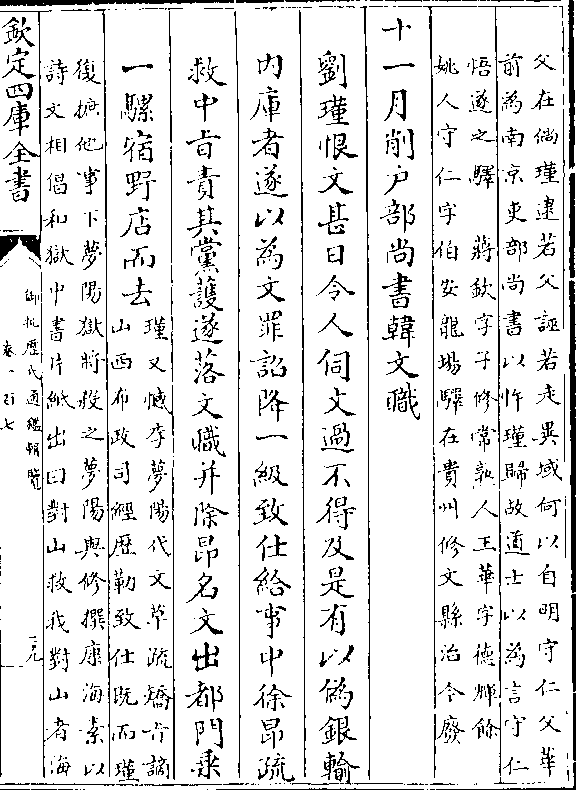 父在倘瑾逮若父誣若走異域何以自明守仁父華
前為南京吏部尚書以忤瑾歸故道士以為言守仁
悟遂之驛　蔣欽字子修常熟人王華字德輝餘
姚人守仁字伯安龍場驛在貴州修文縣治今廢
十一月削户部尚書韓文職
劉瑾恨文甚日令人伺文過不得及是有以偽銀輸
内庫者遂以為文罪詔降一級致仕給事中徐昂疏
救中旨責其黨護遂落文職并除昂名文出都門乗
一騾宿野店而去
瑾又憾李夢陽代文草疏矯旨謫
山西布政司經歷勒致仕既而瑾
復摭他事下夢陽獄將殺之夢陽與修撰康海素以
詩文相倡和獄中書片紙出曰對山救我對山者海
欽定四庫全書
御批歷代通鑑輯覽
卷一百七